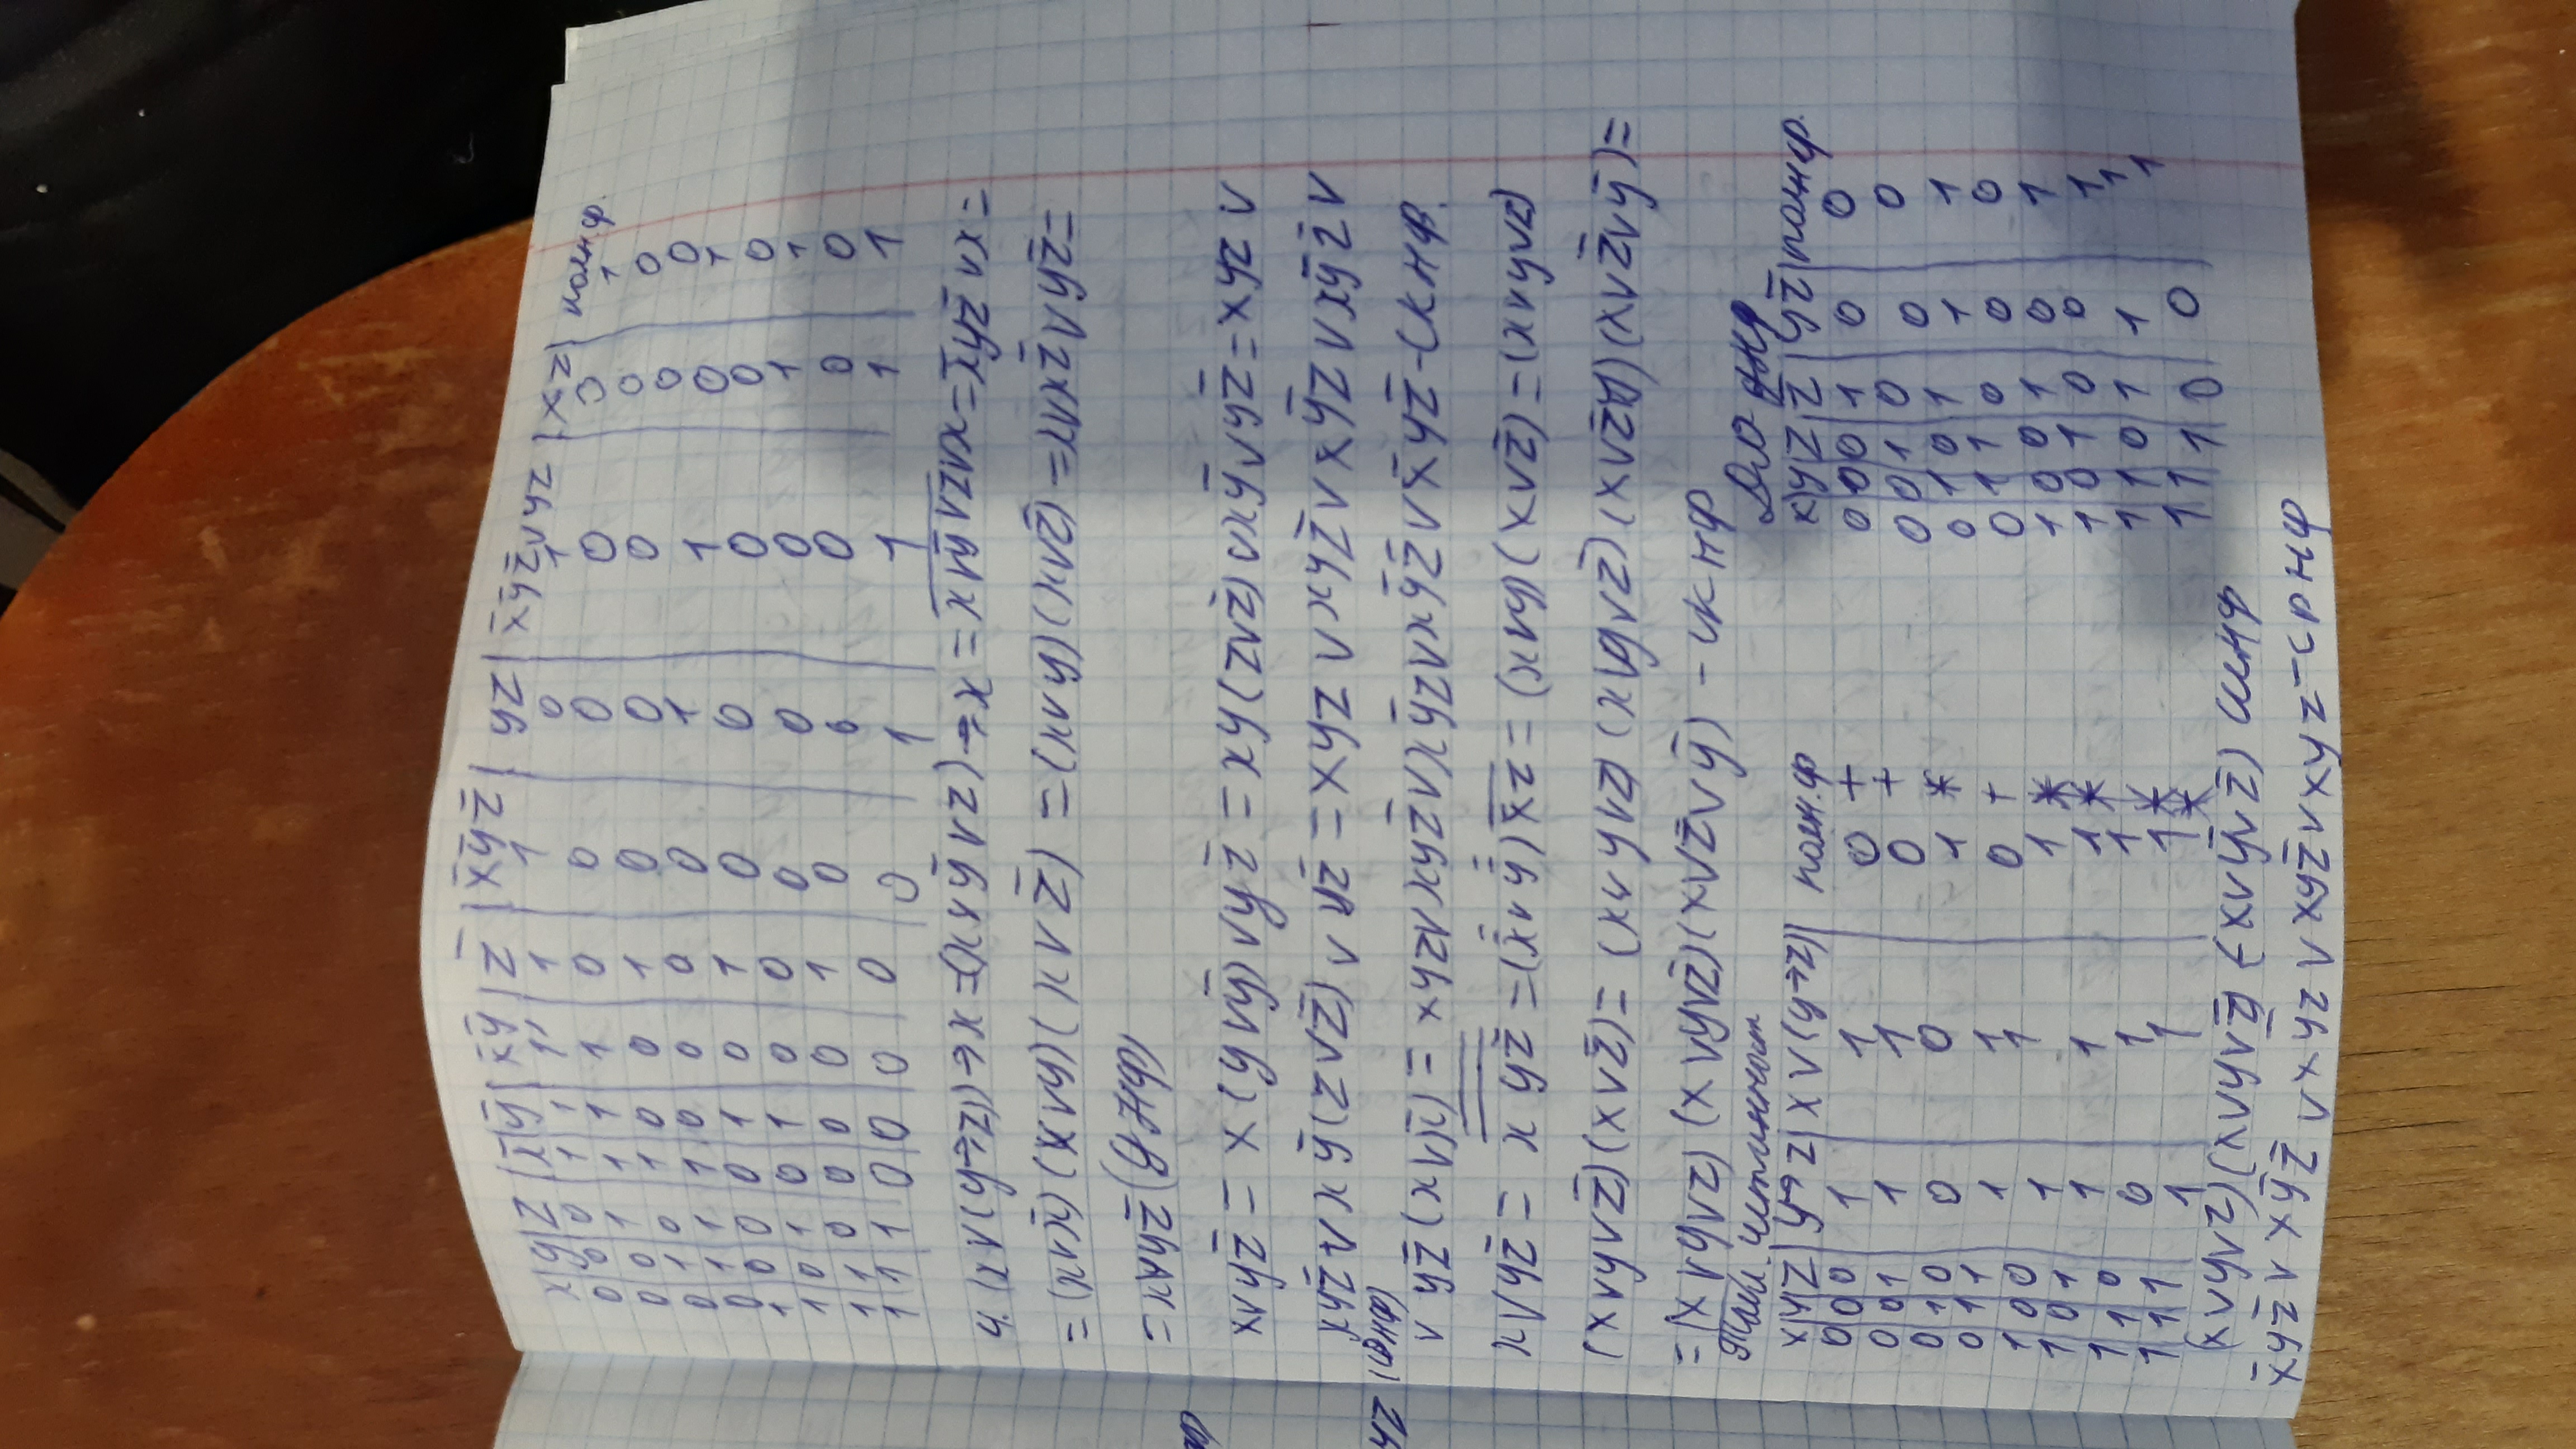 x|y|z|x̄|ȳ|x̄ȳ|z̄|x̄ȳz̄|yz|x̄ȳz̄∨yz|xz|полн.ф.
0 0 0 1 1 1 1 1 0 1 0 1
0 0 1 1 1 1 0 0 0 0 0 0
0 1 0 1 0 0 1 0 0 0 0 0
0 1 1 1 0 0 0 0 1 1 0 1
1 0 0 0 1 0 1 0 0 0 0 0
1 0 1 0 1 0 0 0 0 0 1 1
1 1 0 0 0 0 1 0 0 0 0 0
1 1 1 0 0 0 0 0 1 1 1 1
= x∨z̄yx̄=
=z̄y∨z̄x∨x= (z̄∨x)(y∨x) = (z̄∨x)(y∨x)(x̄∨x) =
= x∨yz̄ (ДНФ)
x∨yz̄ = x(y∨ȳ)∨yz̄ = xy(z∨z̄)∨xȳ∨yz̄ = xyz ∨
xyz̄ ∨ xȳ(z∨z̄) ∨ yz̄ = xyz ∨ xyz̄ ∨ xȳz ∨ xȳz̄ ∨
∨ yz̄(x∨x̄) = xyz∨xyz̄∨xȳz∨xȳz̄∨x̄yz̄ - СКНФ.
x∨yz̄ = (x∨y)(x∨z̄) = (x∨y∨z)
(x∨y∨z̄)(x∨z̄) = (x∨y∨z)(x∨y∨z̄)(x∨z̄∨y)(x∨z̄∨ȳ)=
= (x∨y∨z)(x∨y∨z̄)(x∨z̄∨ȳ) - СКНФ
Табл. истинност
x|y|z|y→z|x∨(y→z)|полн.ф
0 0 0 1 1 0 +
0 0 1 1 1 0 +
0 1 0 0 0 1 *
0 1 1 1 1 0 +
1 0 0 1 1 1 *
1 0 1 1 1 1 *
1 1 0 0 1 1 *
1 1 1 1 1 1 *
Для ДНФ
x|y|z|z̄|yz̄|полн ф.
0 0 0 1 0 0
0 0 1 0 0 0
0 1 0 1 1 1
0 1 1 0 0 0
1 0 0 1 0 1
1 0 1 0 0 1
1 1 0 1 1 1
1 1 1 0 0 1
(x∨y∨z)(x∨y∨z̄)(x∨ȳ∨z̄)
x̄yz̄ ∨ xȳz̄ ∨ xȳz ∨ xyz̄ ∨ xyz - СДНФ